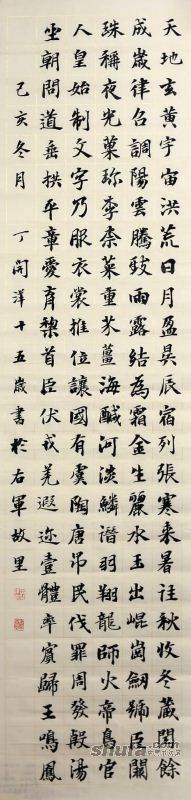 天地玄黄宇宙洪荒日月盈昃辰宿列張寒来暑往秋收冬藏閏餘
成歲律吕調陽雲騰致雨露結為霜金生麗水玉出崑崗劍號巨闕
珠稱夜光菓珍李柰菜重芥薑海鹹河淡鱗潛羽翔龍師火帝鳥官
人皇始制文字乃服衣裳推位讓國有虞陶唐吊民伐罪周發殷湯
坐朝問道垂拱平章愛育黎首臣伏戎羌遐迩壹體率賓歸王鳴鳳
己亥冬月 丁開洋十五歲書於右軍故里
shufa.com